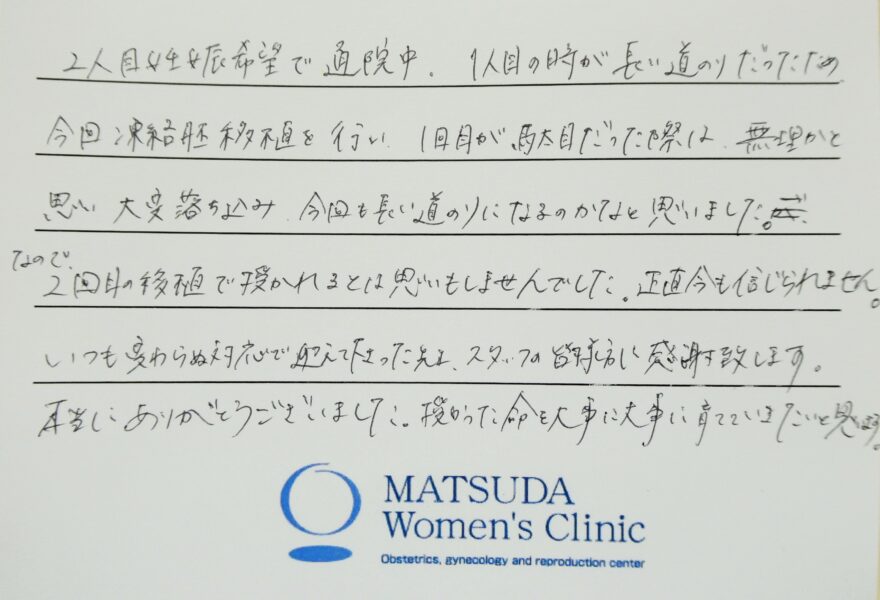 2人目妊娠希望で通院中、1人目の時が長い道のりだったため
今回凍結胚移植を行い、1回目が駄目だった際は、無理かと
思い大変落ち込み、今回も長い道のりになるのかなと思いました。
なので、
2回目の移植で授かれるとは思いもしませんでした。正直今も信じられません。
いつも変わらぬ対応で迎えて下さった先生、スタッフの皆様方に感謝致します。
本当にありがとうございました。授かった命を大事に大事に育てていきたいと思います。
MATSUDA
Women's Clinic
Obstetrics, gynecology and reproduction center